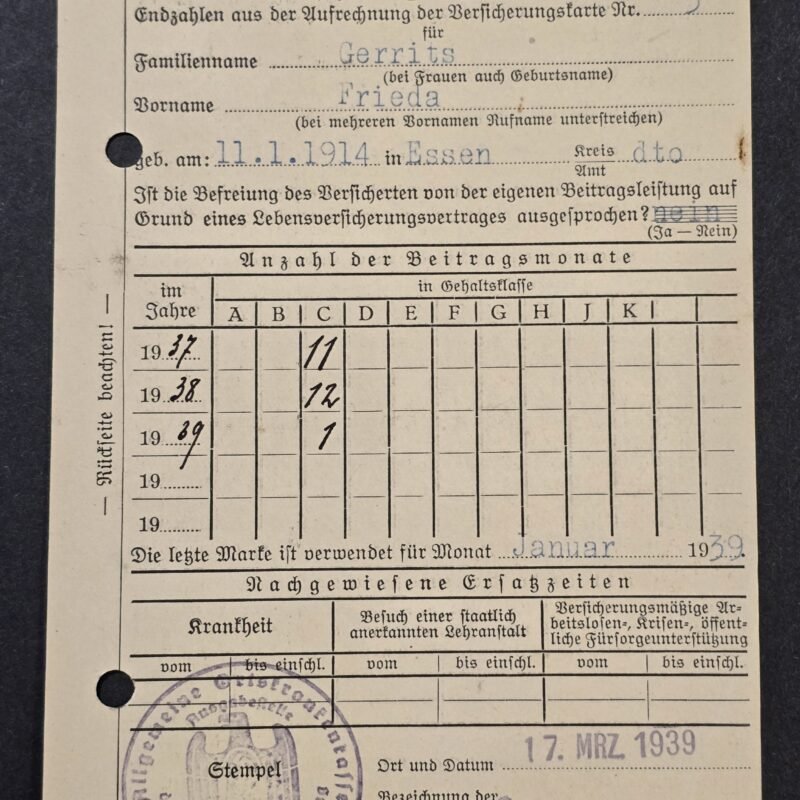 Endzahlen aus der Aufrechnung der Versicherungskarte Nr.
für
Familienname Gerrits
(bei Frauen auch Geburtsname)
Vorname Frieda
(bei mehreren Vornamen Rufname unterstreichen)
geb. am: 11.1.1914 in Essen Kreis dto
Amt
Ist die Befreiung des Versicherten von der eigenen Beitragsleistung auf
Grund eines Lebensversicherungsvertrages ausgesprochen? nein
(Ja — Nein)
Anzahl der Beitragsmonate
im Jahre
in Gehaltsklasse
A B C D E F G H J K
1937 11
1938 12
1939 1
19
19
— Rückseite beachten! —
Die letzte Marke ist verwendet für Monat Januar 1939.
Nachgewiesene Ersatzzeiten
Krankheit
Besuch einer staatlich
anerkannten Lehranstalt
Versicherungsmäßige Ar-
beitslosen-, Krisen-, öffent-
liche Fürsorgeunterstützung
vom bis einschl. vom bis einschl. vom bis einschl.
Allgemeine Ortskrankenkasse
Ausgabestelle
Stempel
Ort und Datum 17. MRZ. 1939
Bezeichnung der